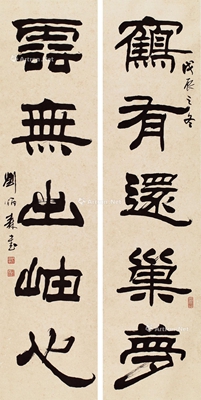 鶴有還巢夢
戊辰之冬
雲無出岫心
劉伯森書